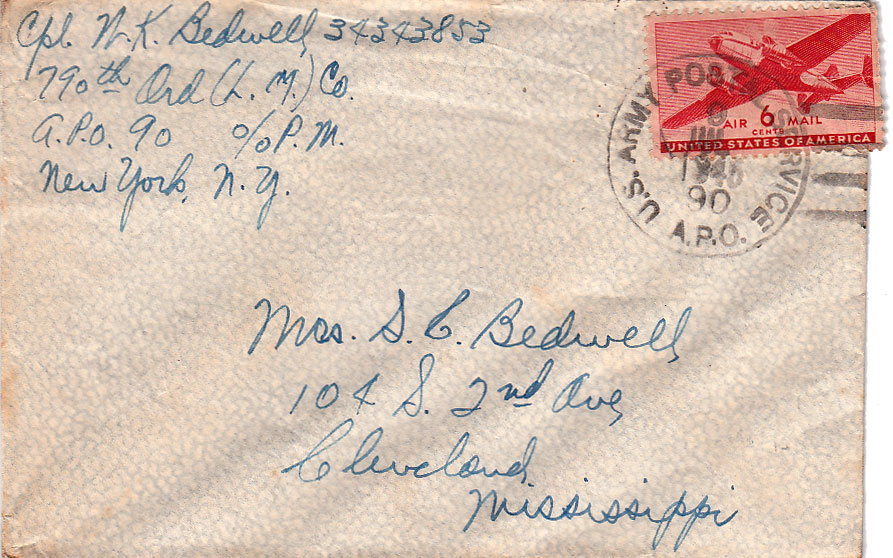 Cpl. N. K. Bedwell, 34343853
790th Ord (L. M.) Co.
A.P.O. 90 c/o P.M.
New York, N. Y.
U.S. ARMY POSTAL SERVICE
9
90
A.P.O.
AIR 6 MAIL
CENTS
UNITED STATES OF AMERICA
Mrs. S. C. Bedwell
104 S. 2nd Ave,
Cleveland,
Mississippi